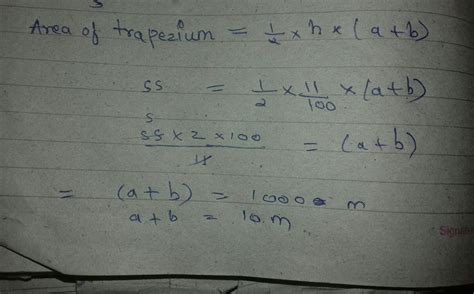 Area of trapezium = 1/2 × h × (a+b)
55 = 1/2 × 11/100 × (a+b)
5
55 × 2 × 100 / 11 = (a+b)
= (a+b) = 1000 m
a+b = 10 m